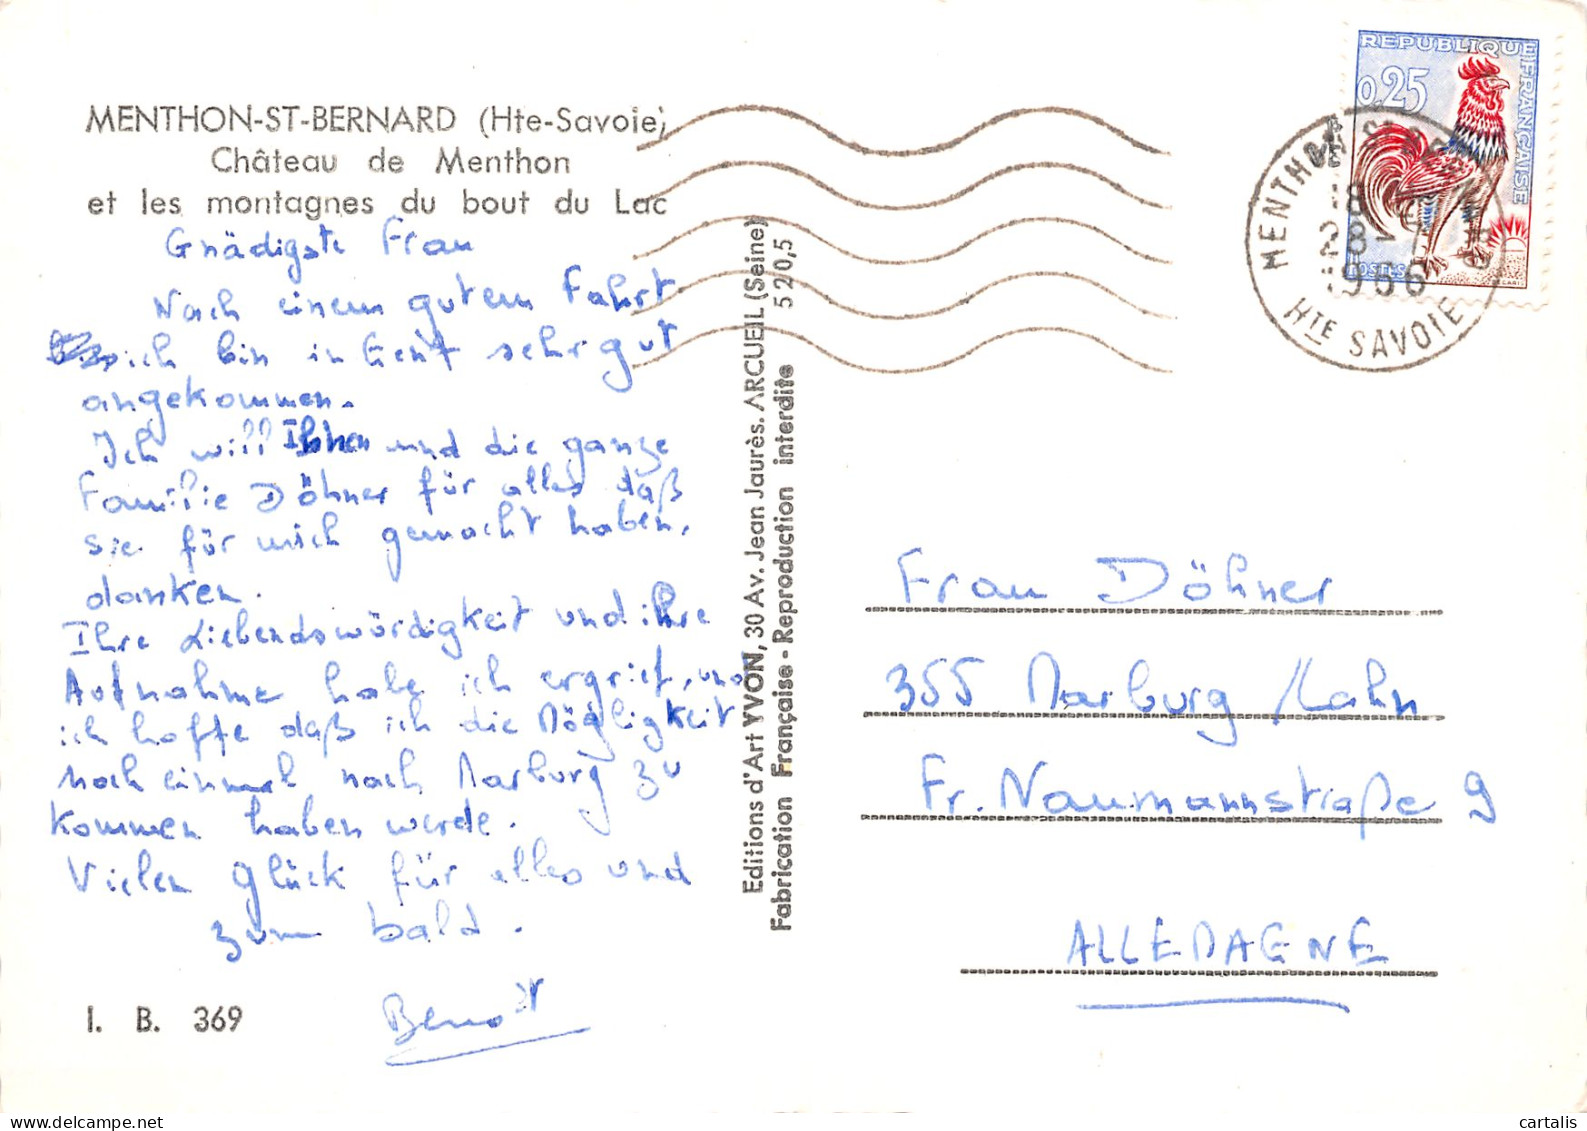 MENTHON-ST-BERNARD (Hte-Savoie)
Château de Menthon
et les montagnes du bout du Lac
Gnädigste Frau
Nach einem gutem Fahrt
ich bin in Genf sehr gut
angekommen.
Ich will Ihnen und die ganze
Familie Döhner für alles daß
sie für mich gemacht haben,
danken.
Ihre Liebendswürdigkeit und ihre
Aufnahme habe ich ergrief, und
ich hoffe daß ich die Mögligkeit
noch einmal nach Marburg zu
kommen haben werde.
Vielen Glück für alles und
zum bald.
Benoît
I. B. 369
Editions d'Art YVON, 30 Av. Jean Jaurès. ARCUEIL (Seine)
Fabrication Française - Reproduction interdite 520,5
REPUBLIQUE FRANÇAISE
0,25
POSTES
DECARIS
MENTHON ST BERNARD
18
28
1966
HTE SAVOIE
Frau Döhner
355 Marburg/Lahn
Fr. Naumannstraße 9
ALLEMAGNE
www.delcampe.net
cartalis